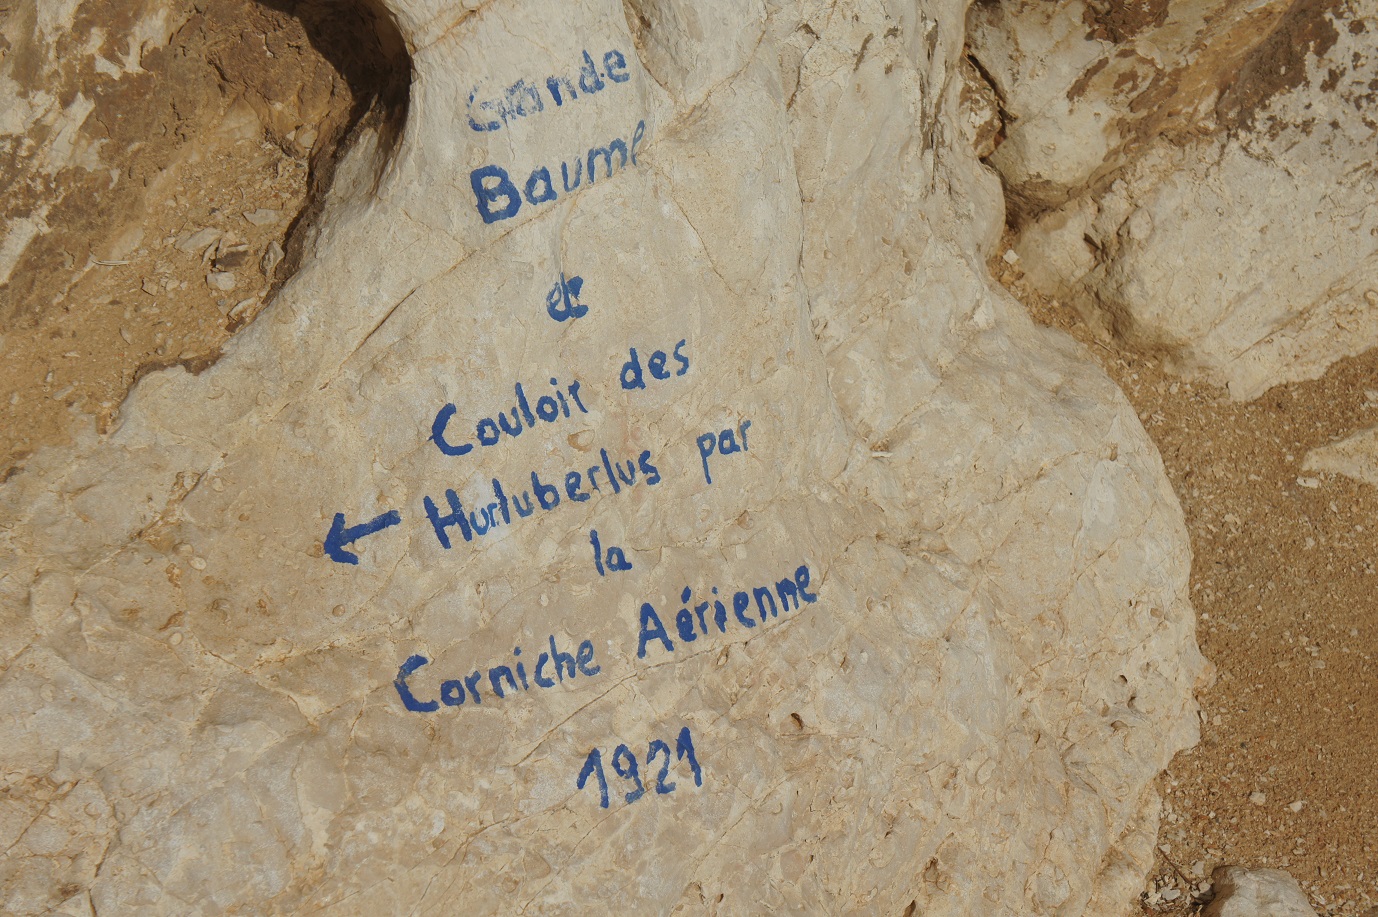 Grande
Baume
et
Couloir des
← Hurluberlus par
la
Corniche Aérienne
1921